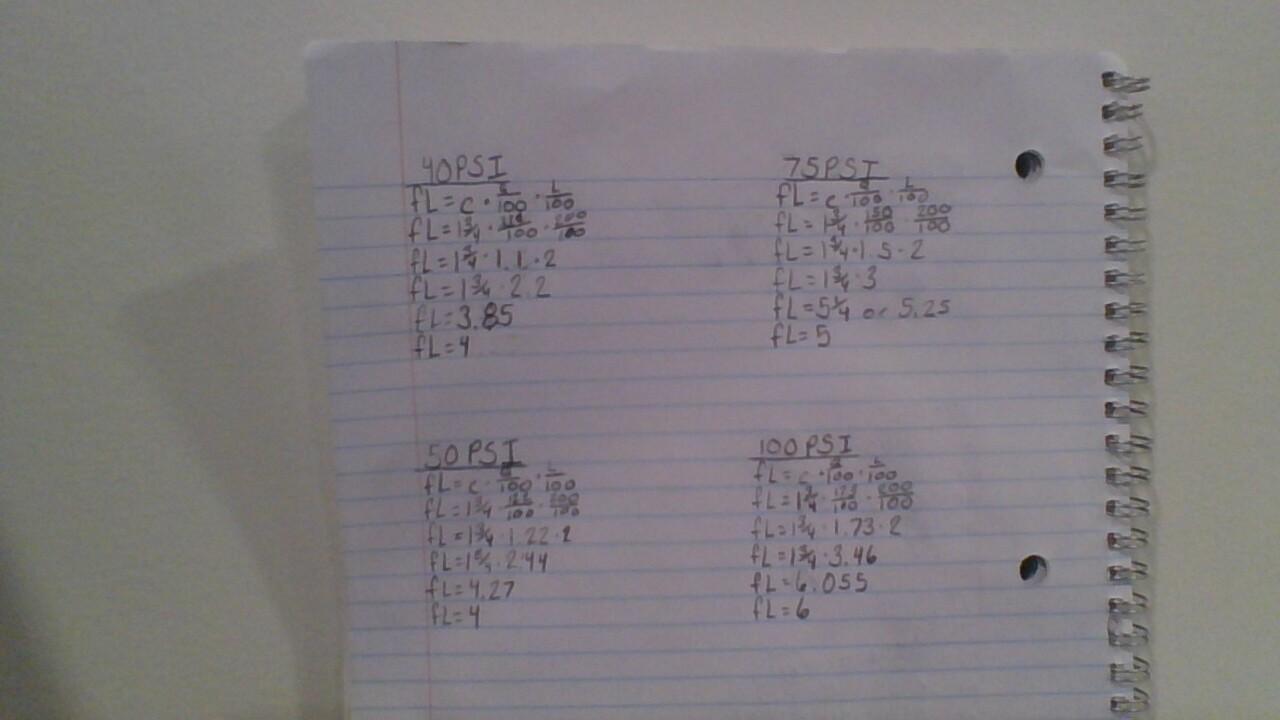 40PSI
fL = C · Q/100 · L/100
fL = 1 3/4 · 110/100 · 200/100
fL = 1 3/4 · 1.1 · 2
fL = 1 3/4 · 2.2
fL = 3.85
fL = 4
75PSI
fL = C · Q/100 · L/100
fL = 1 3/4 · 150/100 · 200/100
fL = 1 3/4 · 1.5 · 2
fL = 1 3/4 · 3
fL = 5 1/4 or 5.25
fL = 5
50 PSI
fL = C · Q/100 · L/100
fL = 1 3/4 · 122/100 · 200/100
fL = 1 3/4 · 1.22 · 2
fL = 1 3/4 · 2.44
fL = 4.27
fL = 4
100 PSI
fL = C · Q/100 · L/100
fL = 1 3/4 · 173/100 · 200/100
fL = 1 3/4 · 1.73 · 2
fL = 1 3/4 · 3.46
fL = 6.055
fL = 6